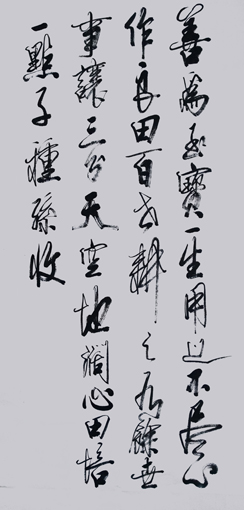 善為至寶一生用之不尽心
作良田百世耕之有餘世
事讓三分天空地闊心田培
一點子種孫收